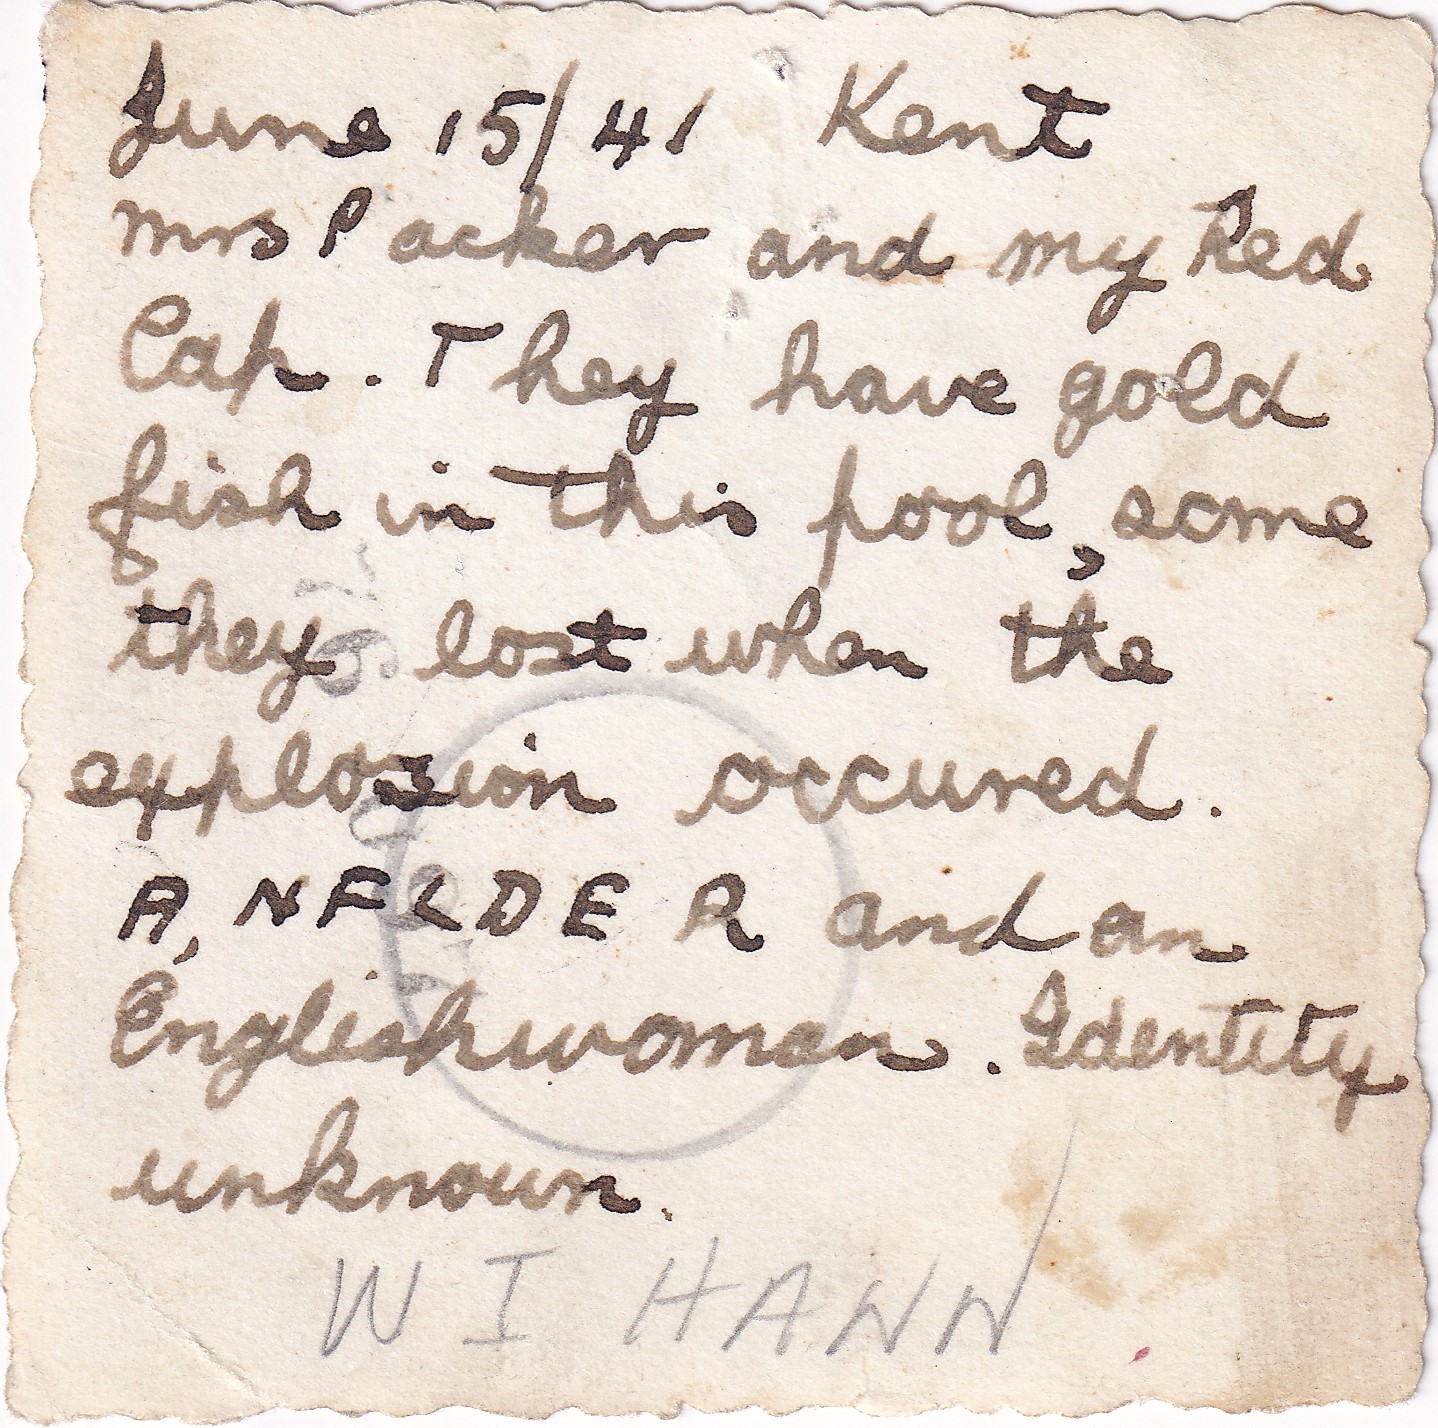 June 15/41 Kent
Mrs Packer and my Red
Cap. They have gold
fish in this pool, some
they lost when the
explosion occured.
A, NFLDER and an
Englishwoman. Identity
unknown.
W I HANN